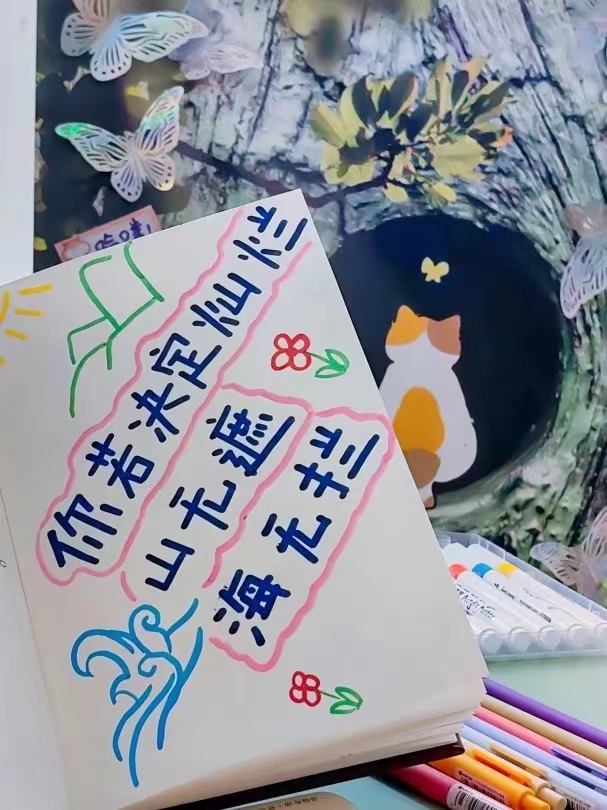 你若决定灿烂
山无遮
海无拦